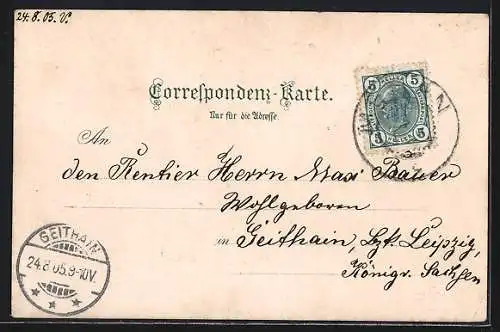 24.8.05. V.
Correspondenz-Karte.
Nur für die Adresse.
5 5
HELLER
5 5
An
den Rentier Herrn Max Bauer
Wohlgeboren
in Geithain, Bzk. Leipzig,
Königr. Sachsen
GEITHAIN
24.8.05.9-10V.